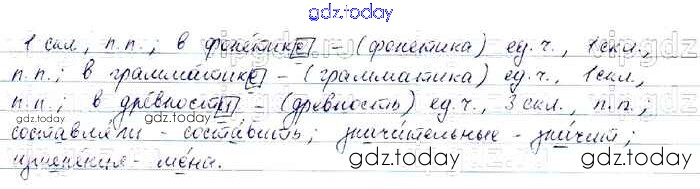 gdz.today
1 скл., п.п.; в фонетике – (фонетика) ед.ч., 1 скл.,
п.п.; в грамматике – (грамматика) ед.ч., 1 скл.,
п.п.; в древности – (древность) ед.ч., 3 скл., п.п.;
составляли – составить; значительные – значит;
изменения – мена.
gdz.today
gdz.today
gdz.today